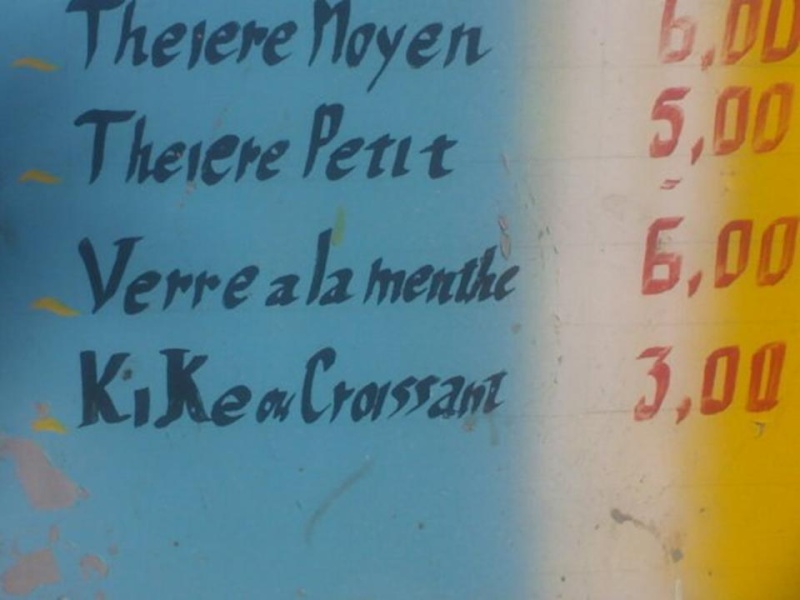 Theiere Moyen 6,00
Theiere Petit 5,00
Verre a la menthe 6,00
KiKe ou Croissant 3,00